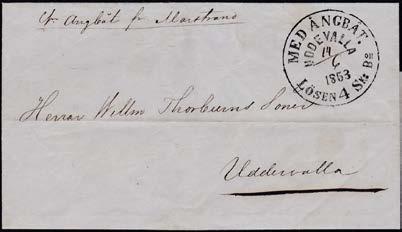 pr Ångbåt fr Marstrand
MED ÅNGBÅT.
UDDEVALLA
14
6
1863
LÖSEN 4 Sk Bco
Herrar Willm Thorburns Söner
Uddevalla